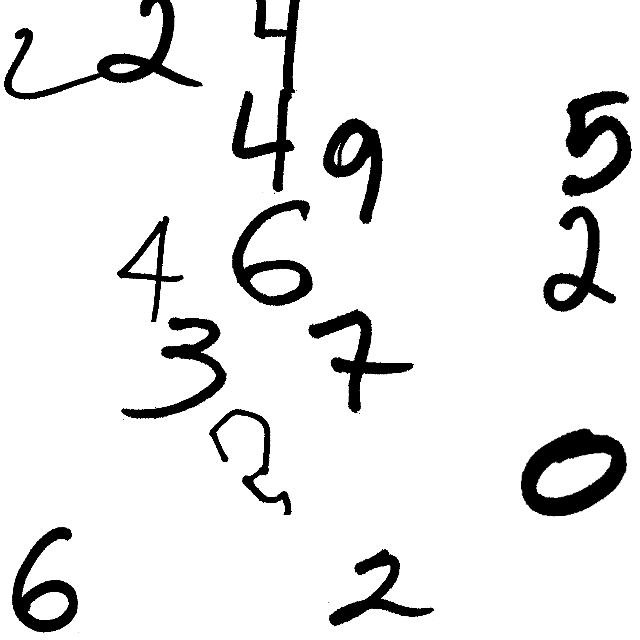 2 4
4 9 5
4 6 2
3 7
2 0
6 2